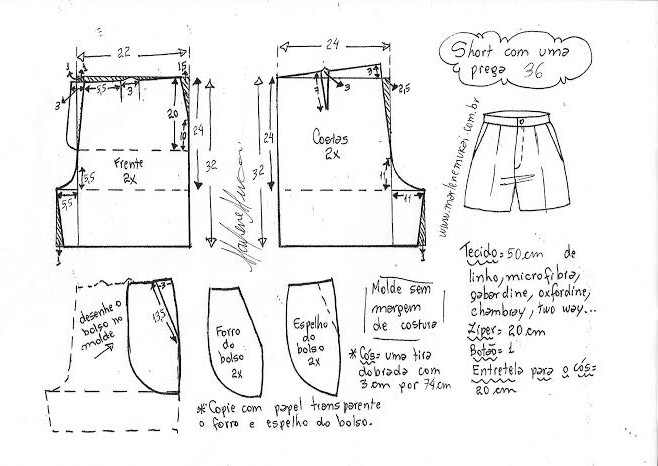 Short com uma
prega 36
22
1
1
15
3
5,5
3
20
24
10
32
Frente
2x
5,5
5,5
1
Marlene Mukai
24
3
3
7
2,5
24
Costas
2x
32
11
11
1
www.marlenemukai.com.br
desenhe o
bolso no
molde
3
13,5
Forro
do
bolso
2x
Espelho
do
bolso
2x
Molde sem
margem
de costura
*Cós= uma tira
dobrada com
3 cm por 74cm
*Copie com papel transparente
o forro e espelho do bolso.
Tecido= 50cm de
linho, microfibra,
gabardine, oxfordine,
chambray, two way...
Zíper= 20cm
Botão= 1
Entretela para o cós=
20cm